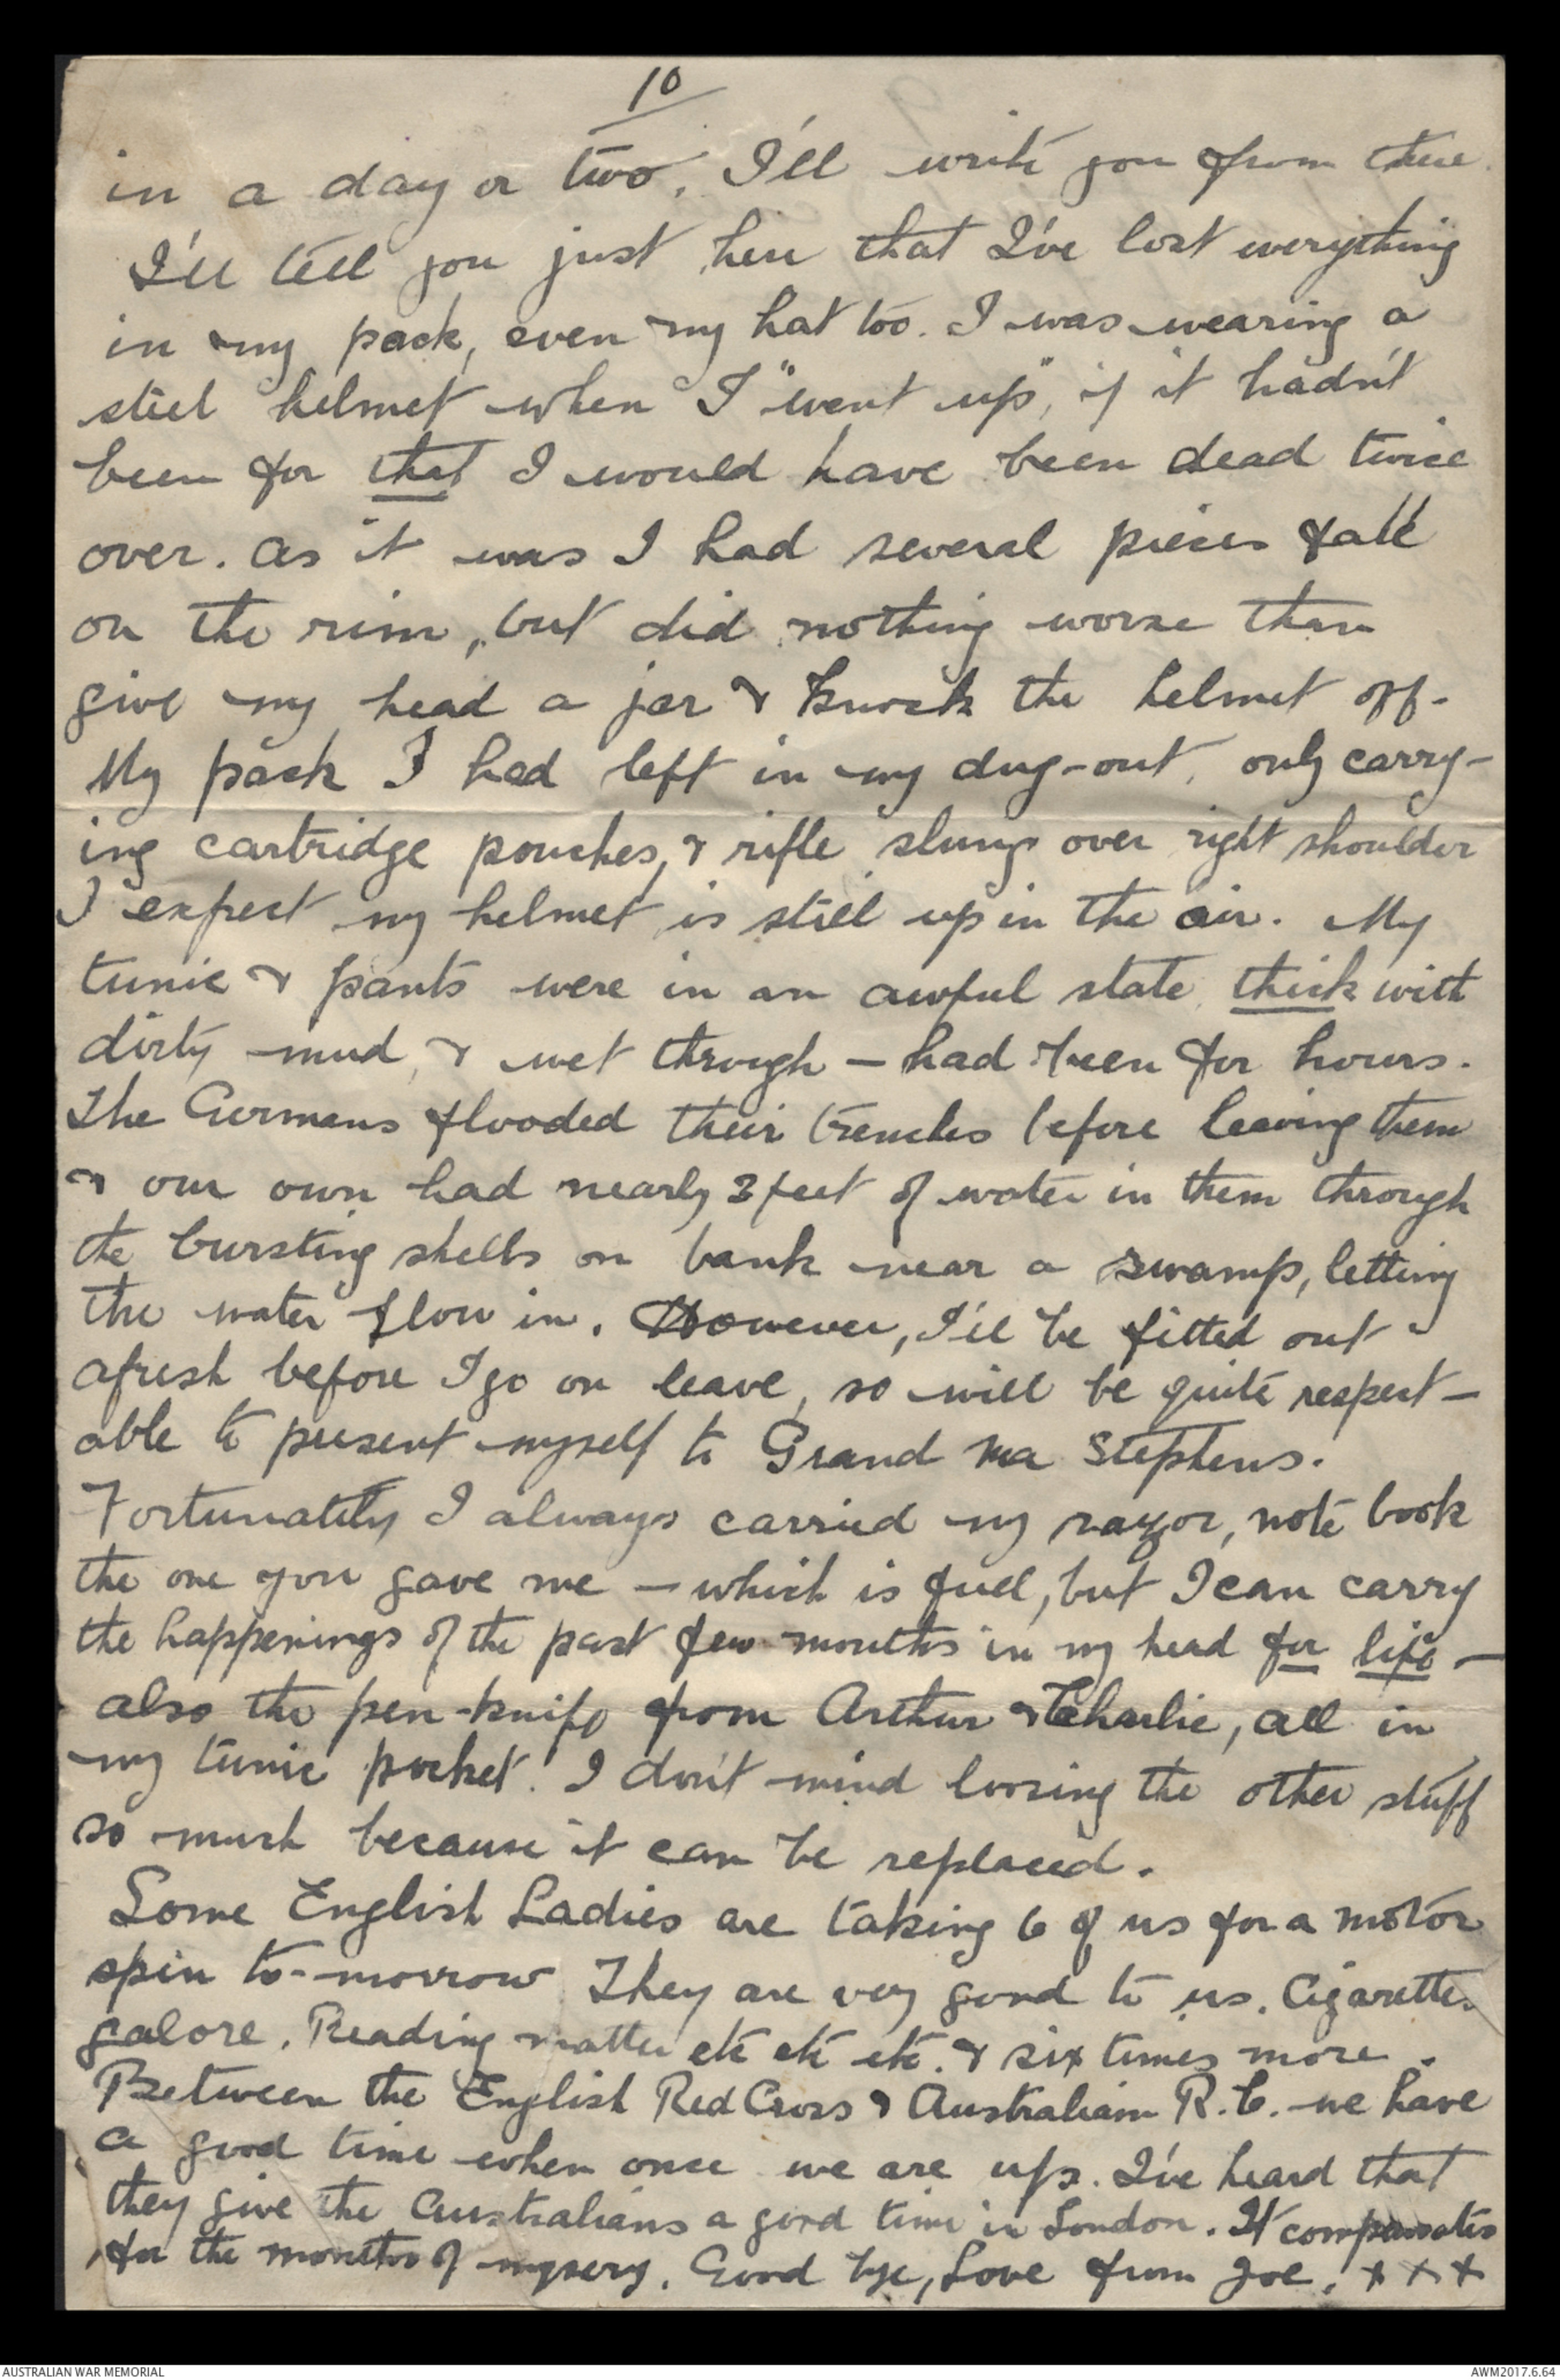 10
in a day or two. I'll write you from there.
I'll tell you just here that I've lost everything
in my pack, even my hat too. I was wearing a
steel helmet when I "went up", if it hadn't
been for that I would have been dead twice
over. As it was I had several pieces fall
on the rim, but did nothing worse than
give my head a jar & knock the helmet off.
My pack I had left in my dug-out, only carry-
ing cartridge pouches, & rifle slung over right shoulder
I expect my helmet is still up in the air. My
tunic & pants were in an awful state, thick with
dirty mud, & wet through - had been for hours.
The Germans flooded their trenches before leaving them
& our own had nearly 3 feet of water in them through
the bursting shells on bank near a swamp, letting
the water flow in. However, I'll be fitted out
afresh before I go on leave, so will be quite respect-
able to present myself to Grand Ma Stephens.
Fortunately I always carried my razor, note book
the one you gave me - which is full, but I can carry
the happenings of the past few months in my head for life -
also the pen-knife from Arthur & Charlie, all in
my tunic pocket. I don't mind loosing the other stuff
so much because it can be replaced.
Some English Ladies are taking 6 of us for a motor
spin to-morrow They are very good to us. Cigarettes
galore. Reading matter etc etc etc. & six times more.
Between the English Red Cross & Australian R.C. we have
a good time when once we are up. I've heard that
they give the Australians a good time in London. It compensates
for the months of mysery. Good bye, Love from Joe. x x x
AUSTRALIAN WAR MEMORIAL
AWM2017.6.64